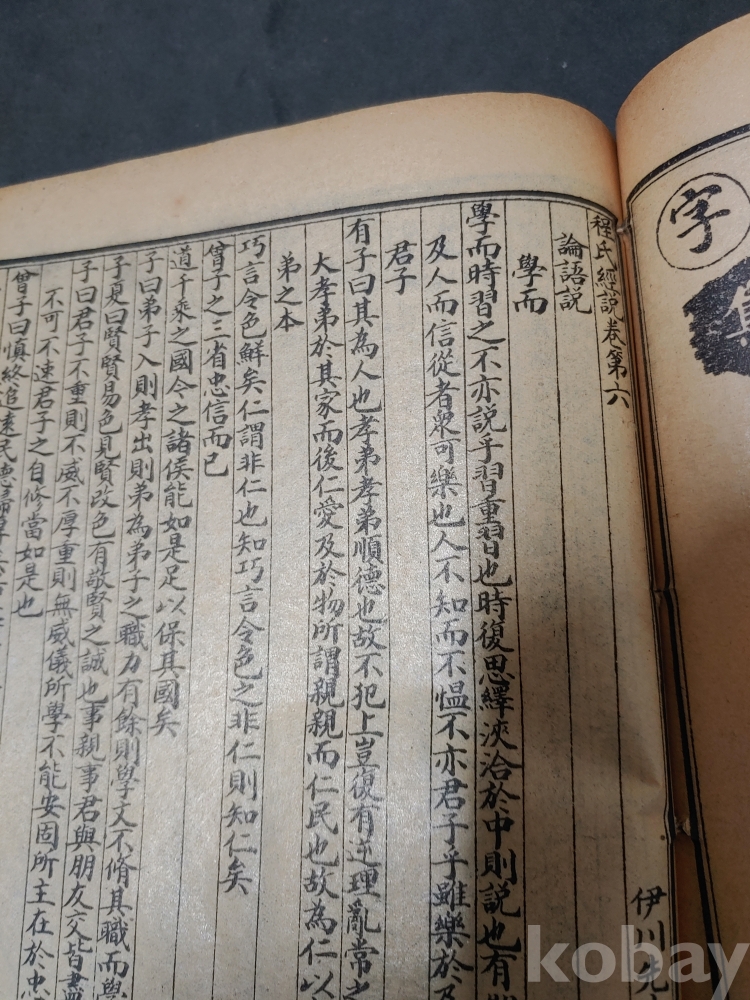 字
程氏經說卷第六
伊川先
論語說
學而
學而時習之不亦說乎習重習也時復思繹浹洽於中則說也有
及人而信從者眾可樂也人不知而不慍不亦君子乎雖樂於及
君子
有子曰其為人也孝弟孝弟順德也故不犯上豈復有逆理亂常之
大孝弟於其家而後仁愛及於物所謂親親而仁民也故為仁以
弟之本
巧言令色鮮矣仁謂非仁也知巧言令色之非仁則知仁矣
曾子之三省忠信而已
道千乘之國今之諸侯能如是足以保其國矣
子曰弟子入則孝出則弟為弟子之職力有餘則學文不脩其職而學
子夏曰賢賢易色見賢改色有敬賢之誠也事親事君與朋友交皆盡
子曰君子不重則不威不厚重則無威儀所學不能安固所主在於忠
不可不速君子之自修當如是也
曾子曰慎終追遠民德歸厚
kobay